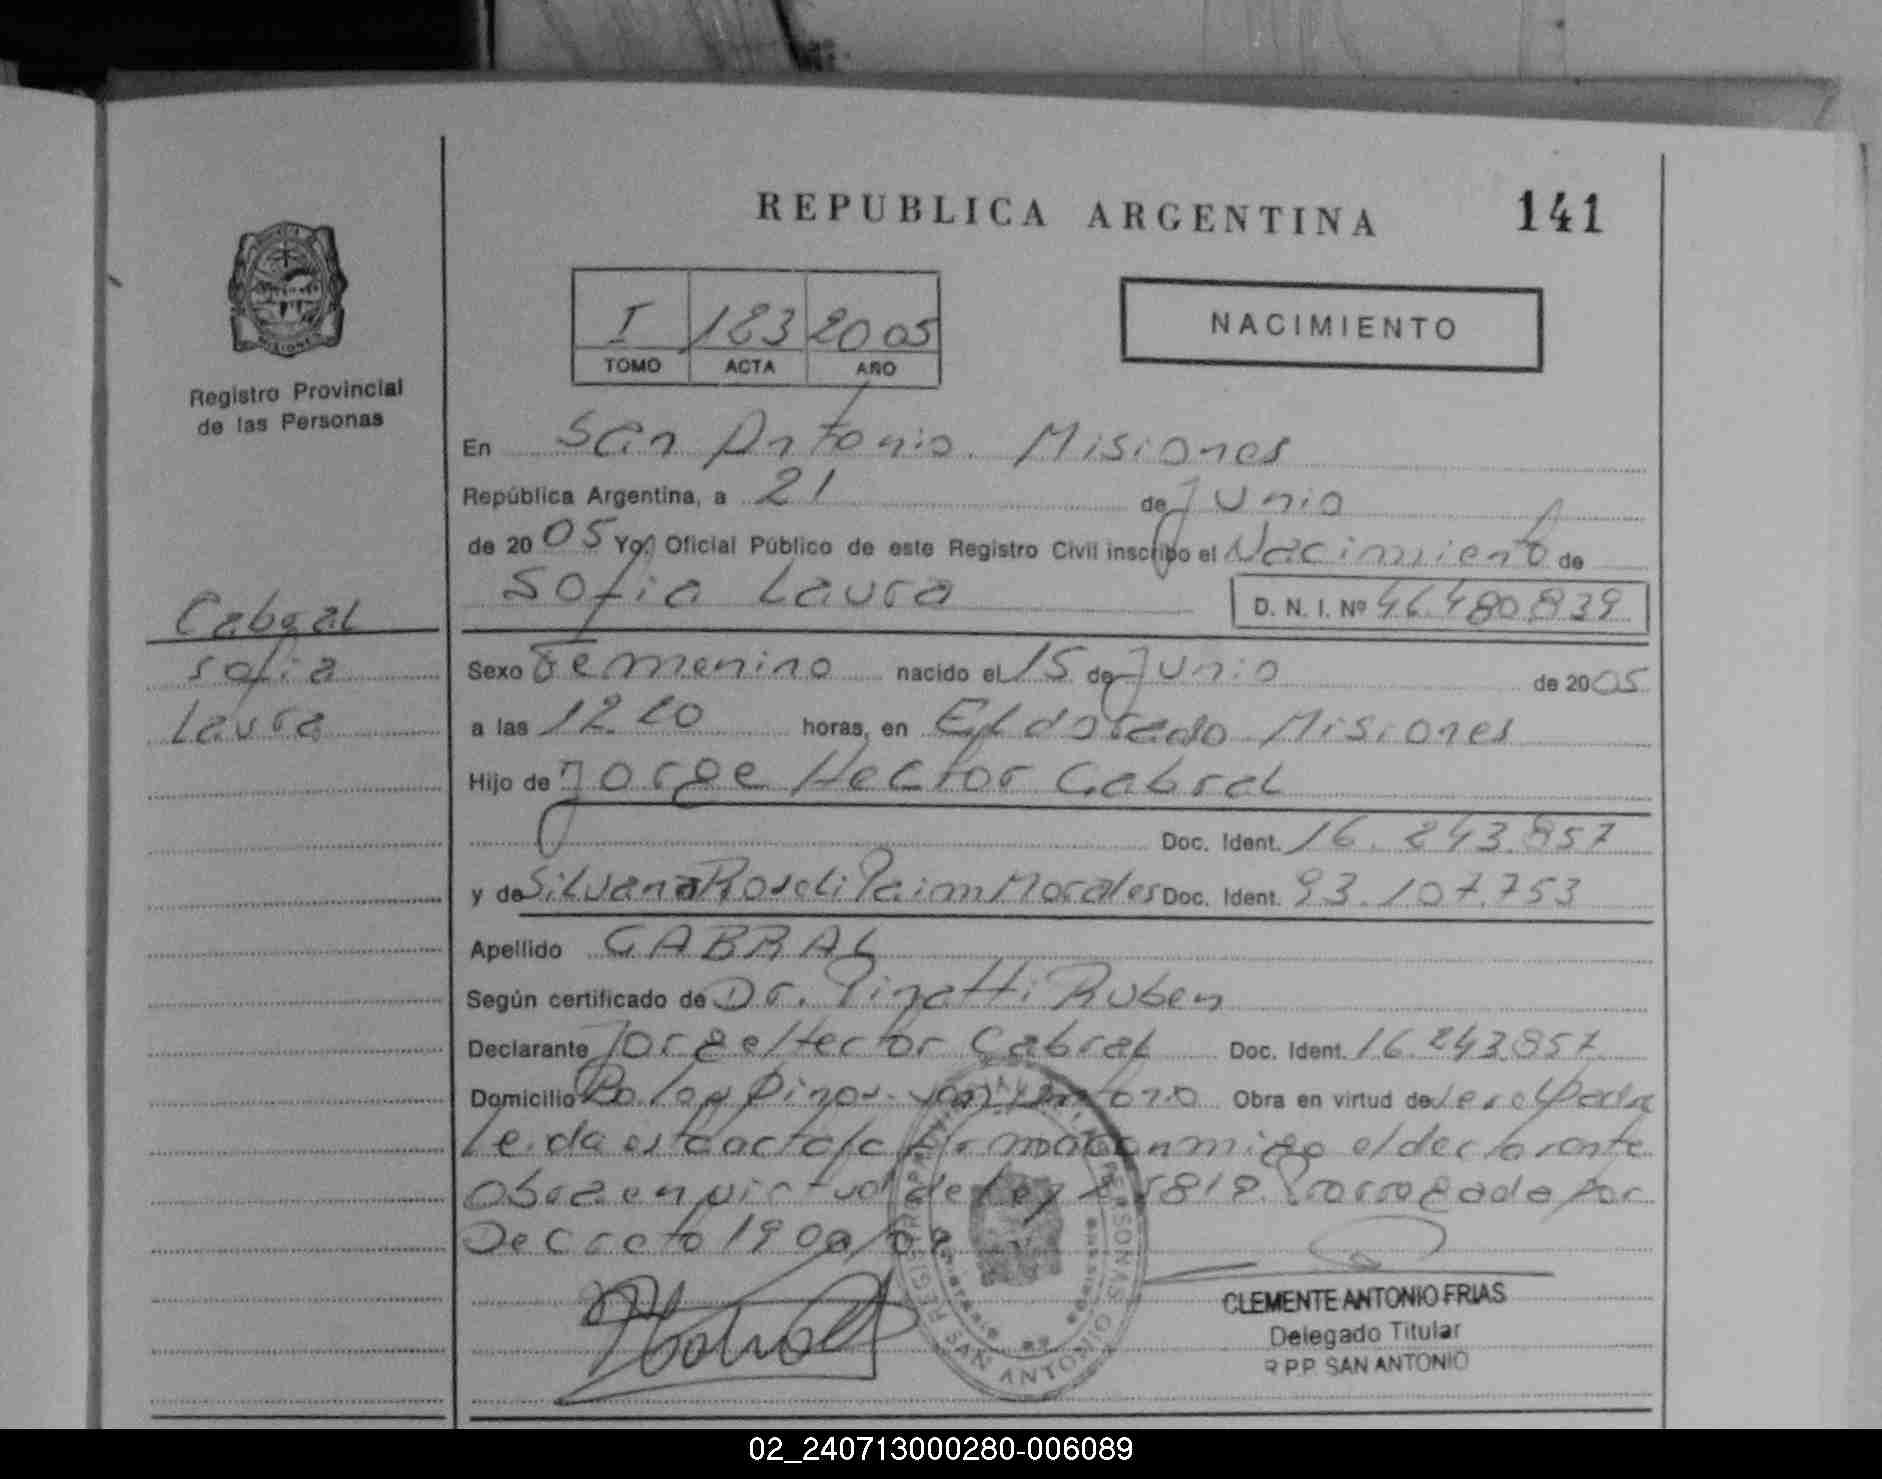 REPUBLICA ARGENTINA
141
I 183 2005
TOMO ACTA AÑO
NACIMIENTO
Registro Provincial
de las Personas
En San Antonio. Misiones
República Argentina, a 21 de Junio
de 2005 Yo, Oficial Público de este Registro Civil inscribo el Nacimiento de
Sofia Laura
D. N. I. Nº 46.480.839
Cabral
Sofia
Laura
Sexo Femenino nacido el 15 de Junio de 2005
a las 12.20 horas, en Eldorado. Misiones
Hijo de Jorge Hector Cabral
Doc. Ident. 16.243.857
y de Silvana Roseli Paim Morales Doc. Ident. 93.107.753
Apellido CABRAL
Según certificado de Dr. Pizatti Ruben
Declarante Jorge Hector Cabral Doc. Ident. 16.243.857
Domicilio San Antonio Obra en virtud de ser el Padre
Leida esta acta la firma conmigo el declarante
Obra en virtud de Ley 25819 Prorrogada por
Decreto
REGISTRO PROVINCIAL DE LAS PERSONAS
SAN ANTONIO
CLEMENTE ANTONIO FRIAS
Delegado Titular
R.P.P. SAN ANTONIO
02_240713000280-006089